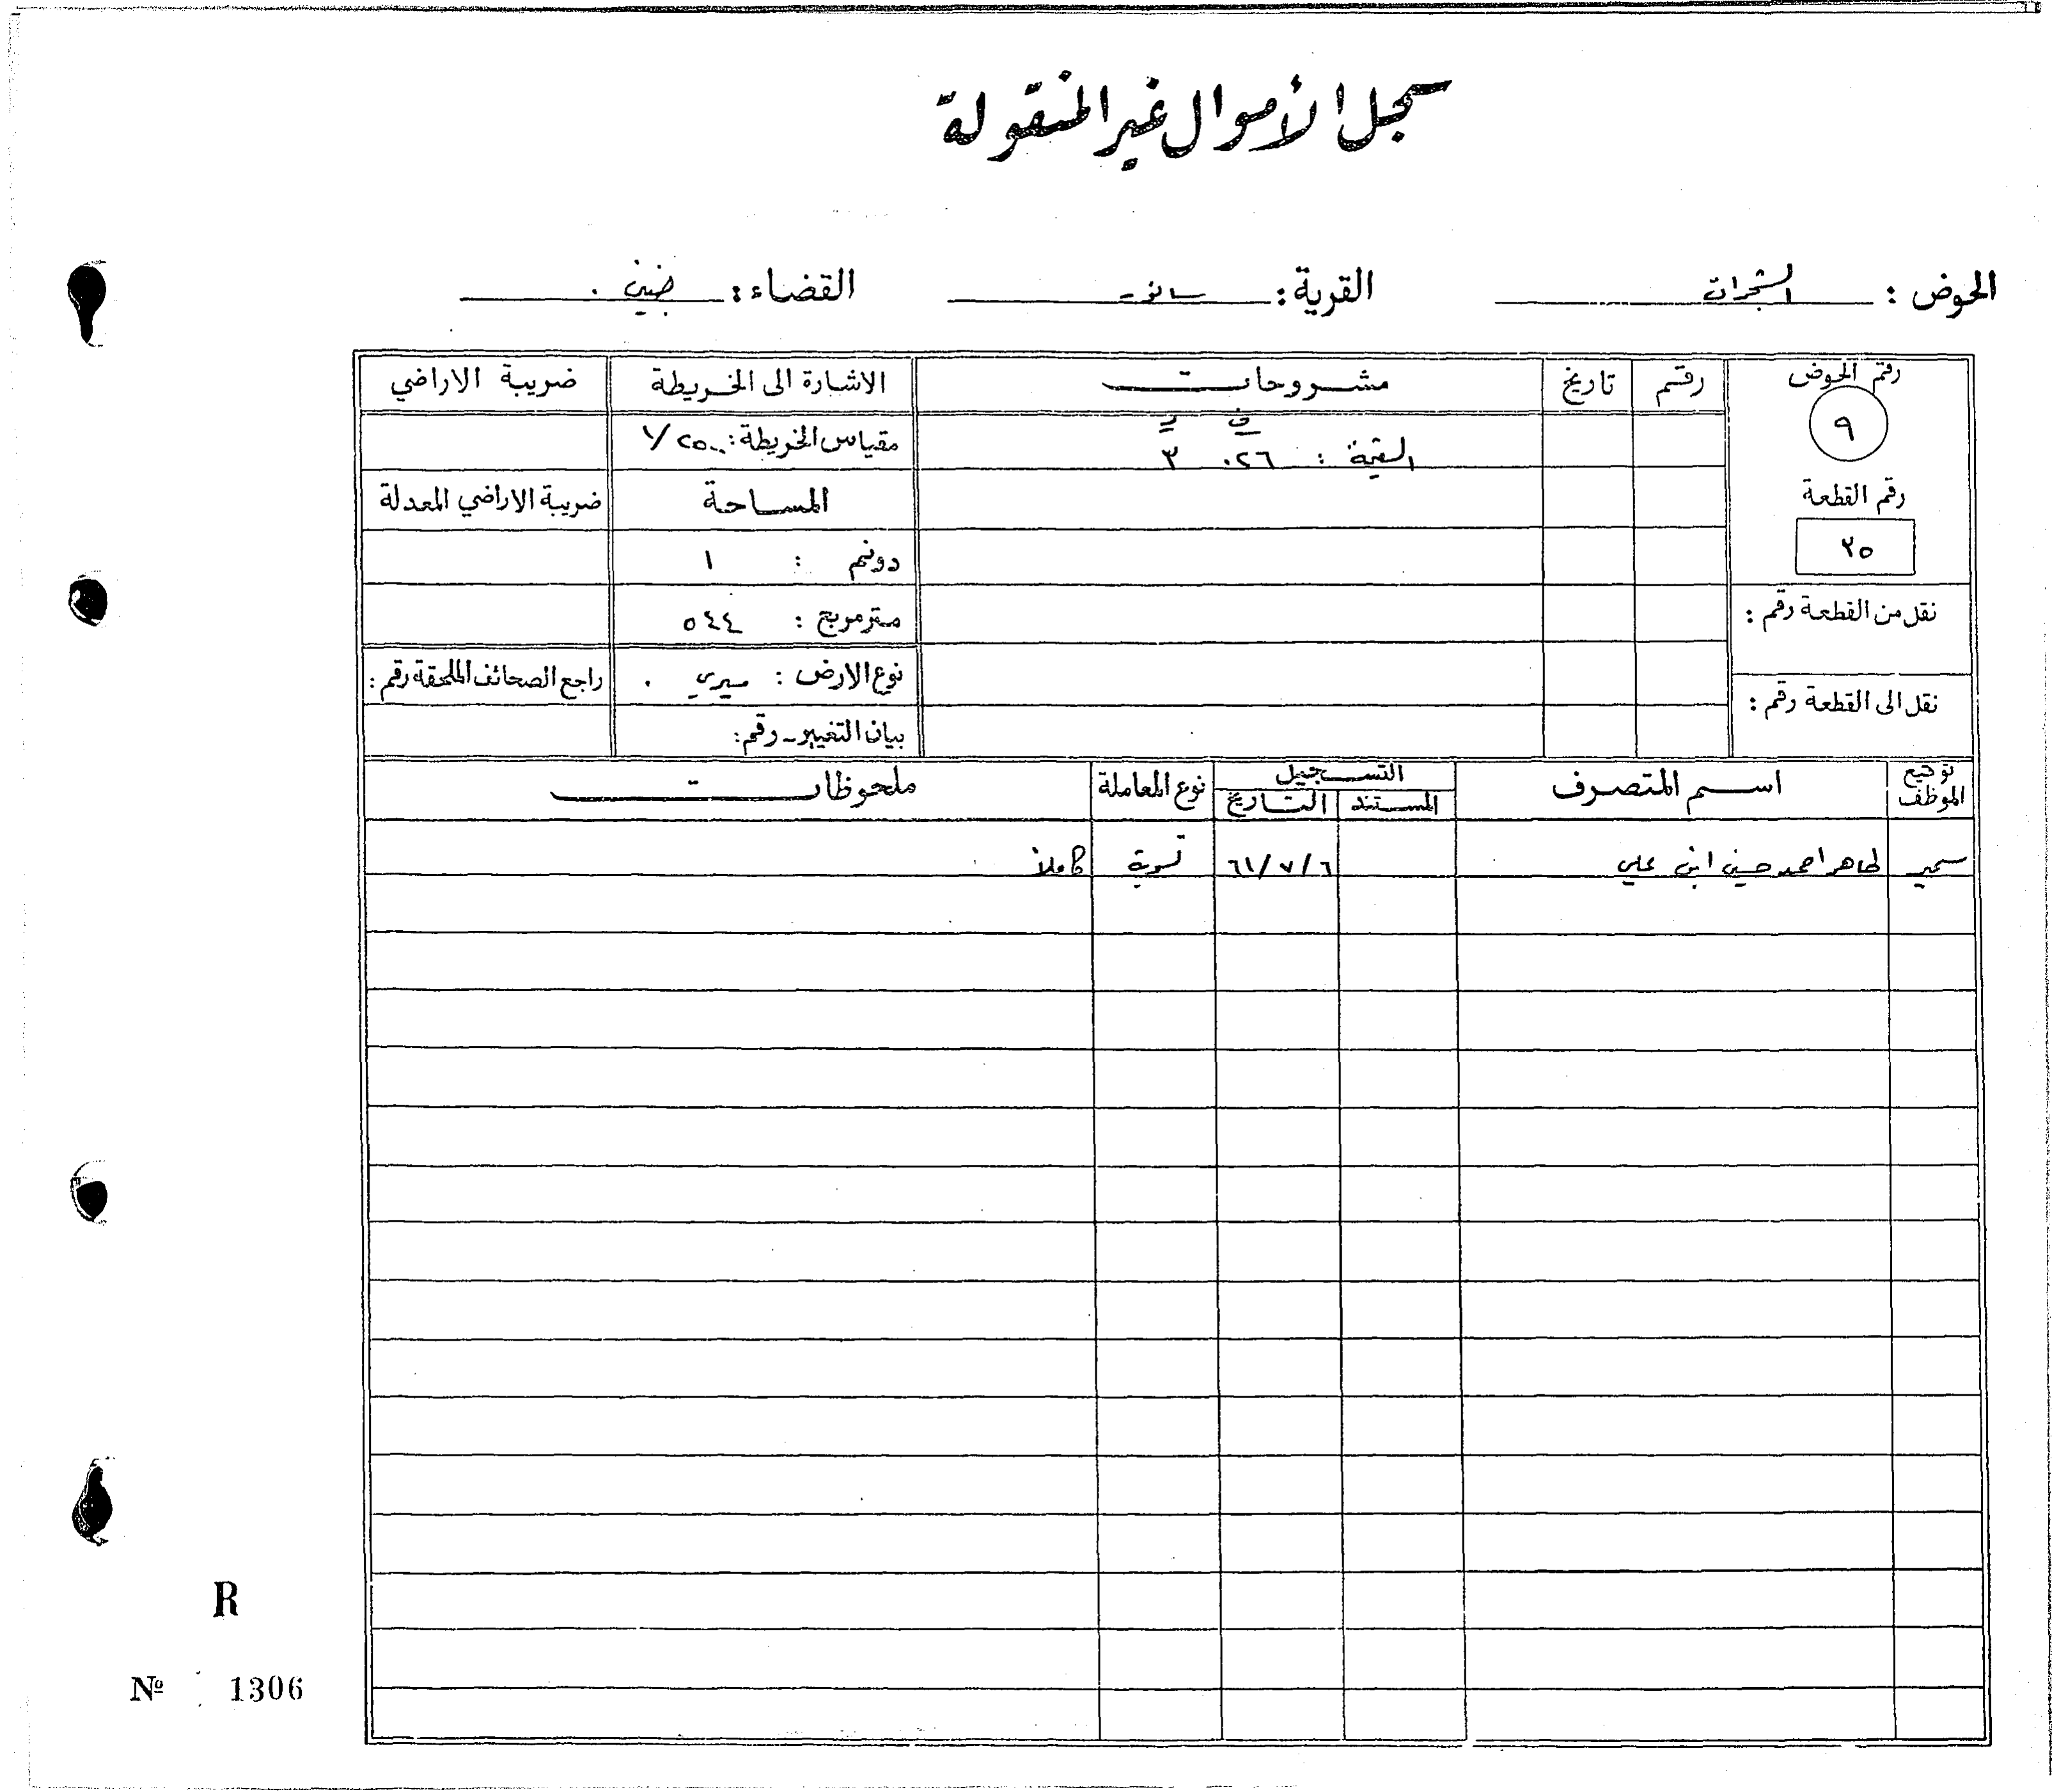 سجل الأموال غير المنقولة
الحوض : الشجرات القرية : سانور القضاء : جنين .
رقم الحوض رقم تاريخ مشروحات الاشارة الى الخريطة ضريبة الاراضي
٩
ف د
القيمة : ٠٢٦ ٣
مقياس الخريطة : ١/٢٥٠٠
رقم القطعة المساحة ضريبة الاراضي المعدلة
٢٥
دونم : ١
نقل من القطعة رقم : متر مربع : ٥٤٤
نوع الارض : ميري . راجع الصحائف الملحقة رقم :
نقل الى القطعة رقم :
بيان التغيير - رقم :
توقيع الموظف اسم المتصرف التسجيل نوع المعاملة ملحوظات
المستند التاريخ
سمير طاهر احمد حسين ابن علي ٦١/٧/٦ تسوية كاملاً
R
Nº 1306